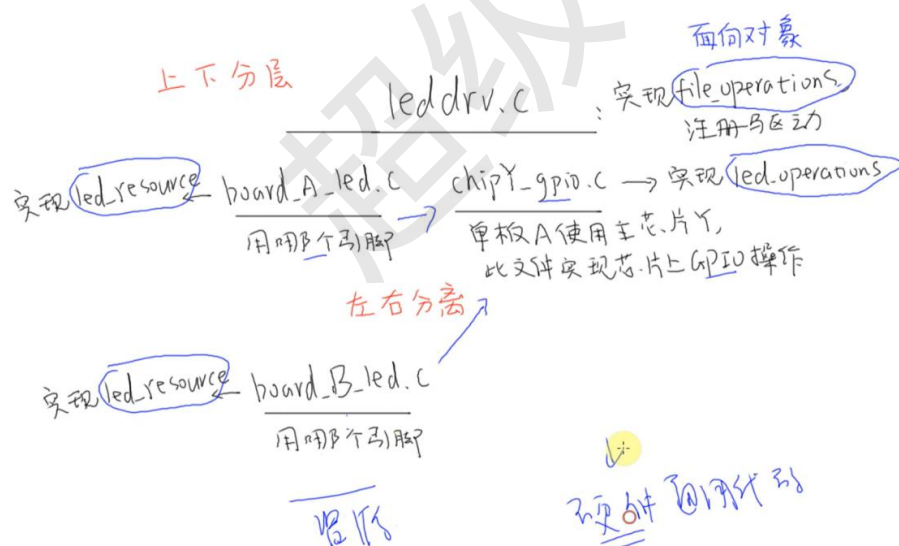 面向对象
上下分层
leddrv.c : 实现 file_operations
注册驱动
实现 led_resource board_A_led.c chipY_gpio.c → 实现 led_operations
用哪个引脚
单板A使用主芯片Y,
此文件实现芯片上GPIO操作
左右分离
实现 led_resource board_B_led.c
用哪个引脚
硬件 通用代码
超级